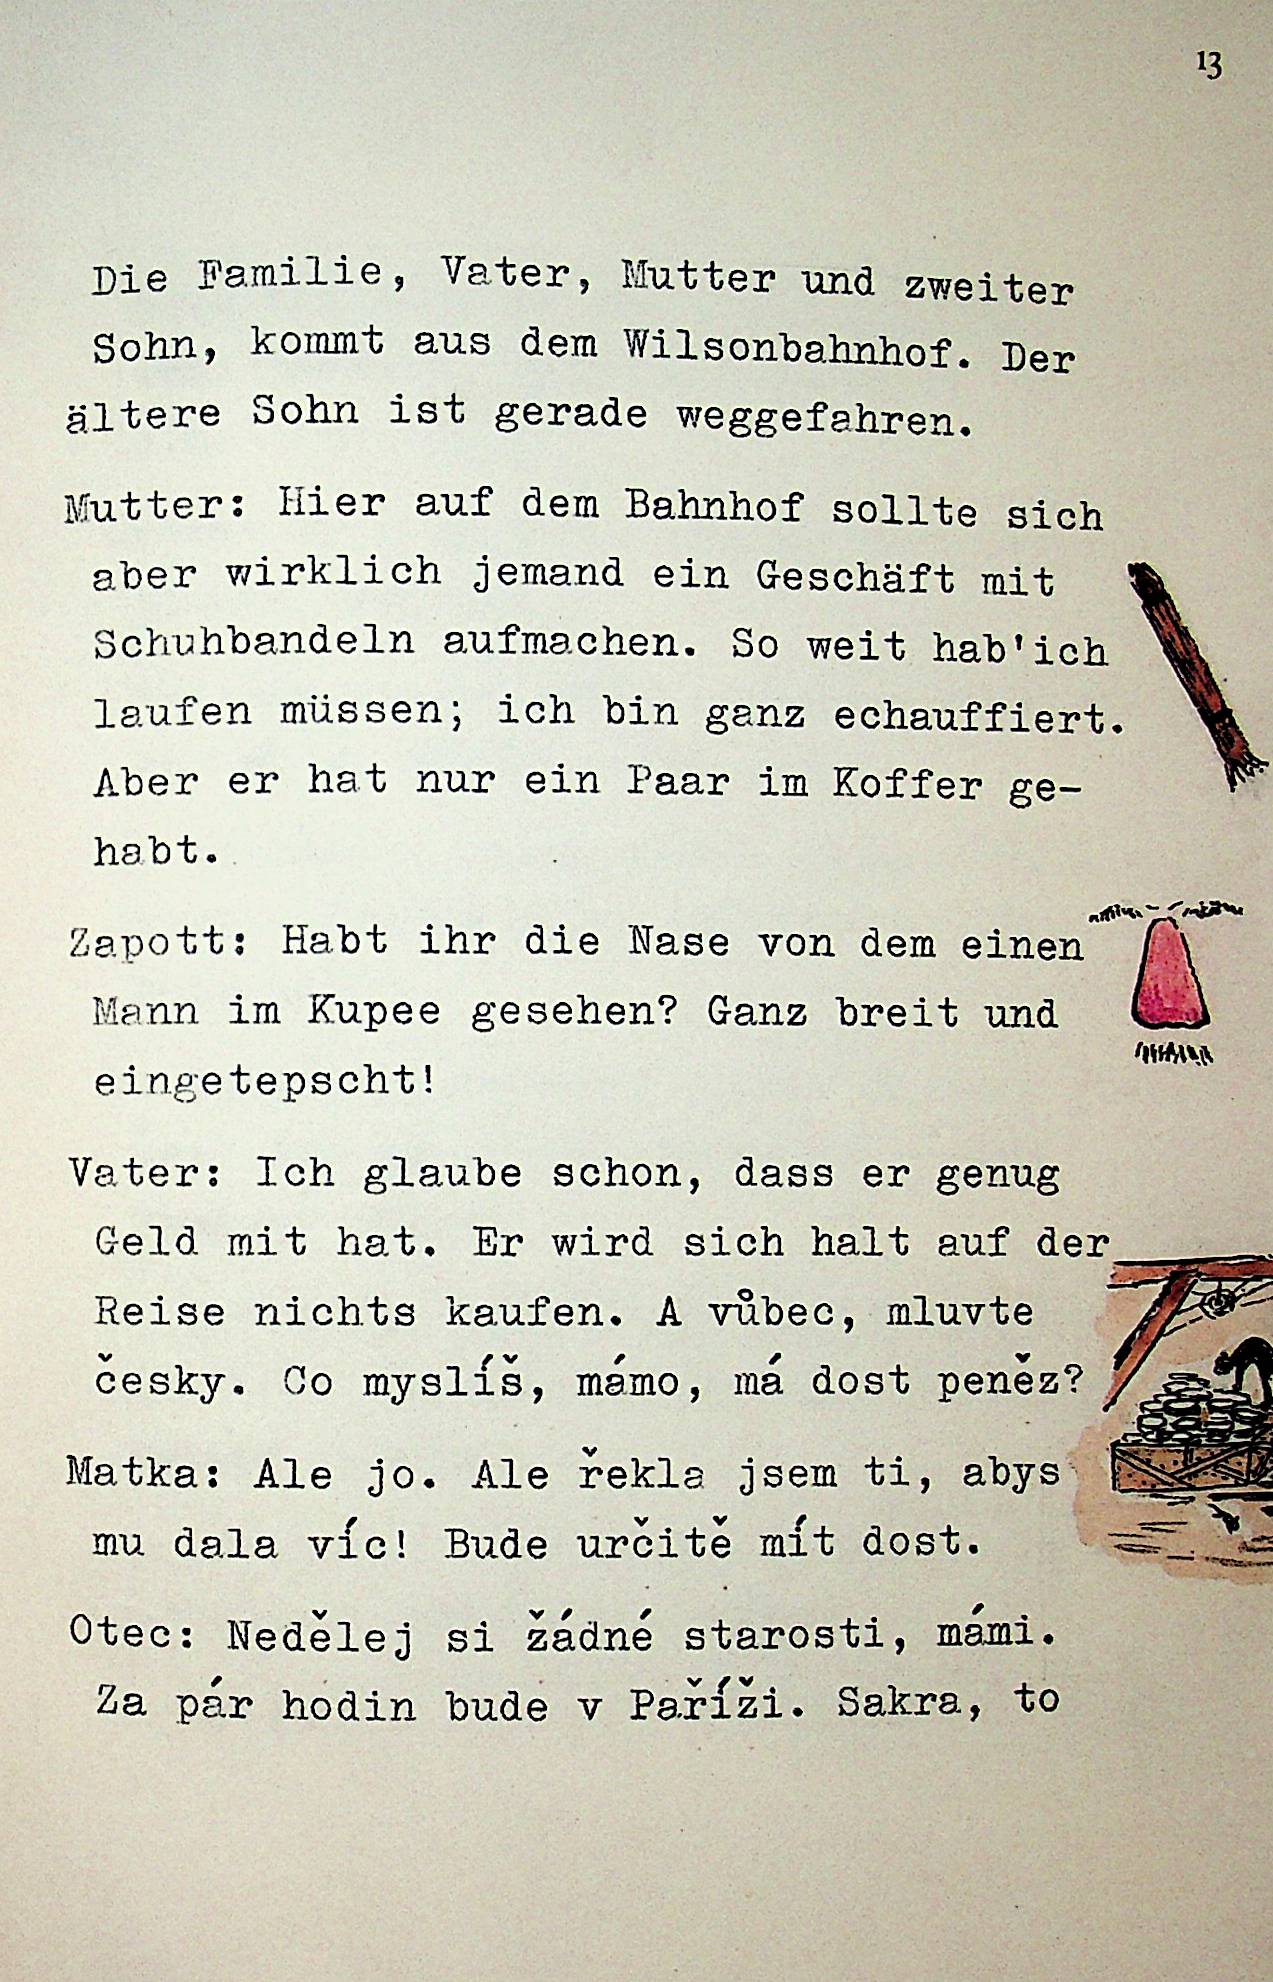 13
Die Familie, Vater, Mutter und zweiter
Sohn, kommt aus dem Wilsonbahnhof. Der
ältere Sohn ist gerade weggefahren.
Mutter: Hier auf dem Bahnhof sollte sich
aber wirklich jemand ein Geschäft mit
Schuhbandeln aufmachen. So weit hab'ich
laufen müssen; ich bin ganz echauffiert.
Aber er hat nur ein Paar im Koffer ge-
habt.
Zapott: Habt ihr die Nase von dem einen
Mann im Kupee gesehen? Ganz breit und
eingetepscht!
Vater: Ich glaube schon, dass er genug
Geld mit hat. Er wird sich halt auf der
Reise nichts kaufen. A vůbec, mluvte
česky. Co myslíš, mámo, má dost peněz?
Matka: Ale jo. Ale řekla jsem ti, abys
mu dala víc! Bude určitě mít dost.
Otec: Nedělej si žádné starosti, mámi.
Za pár hodin bude v Paříži. Sakra, to